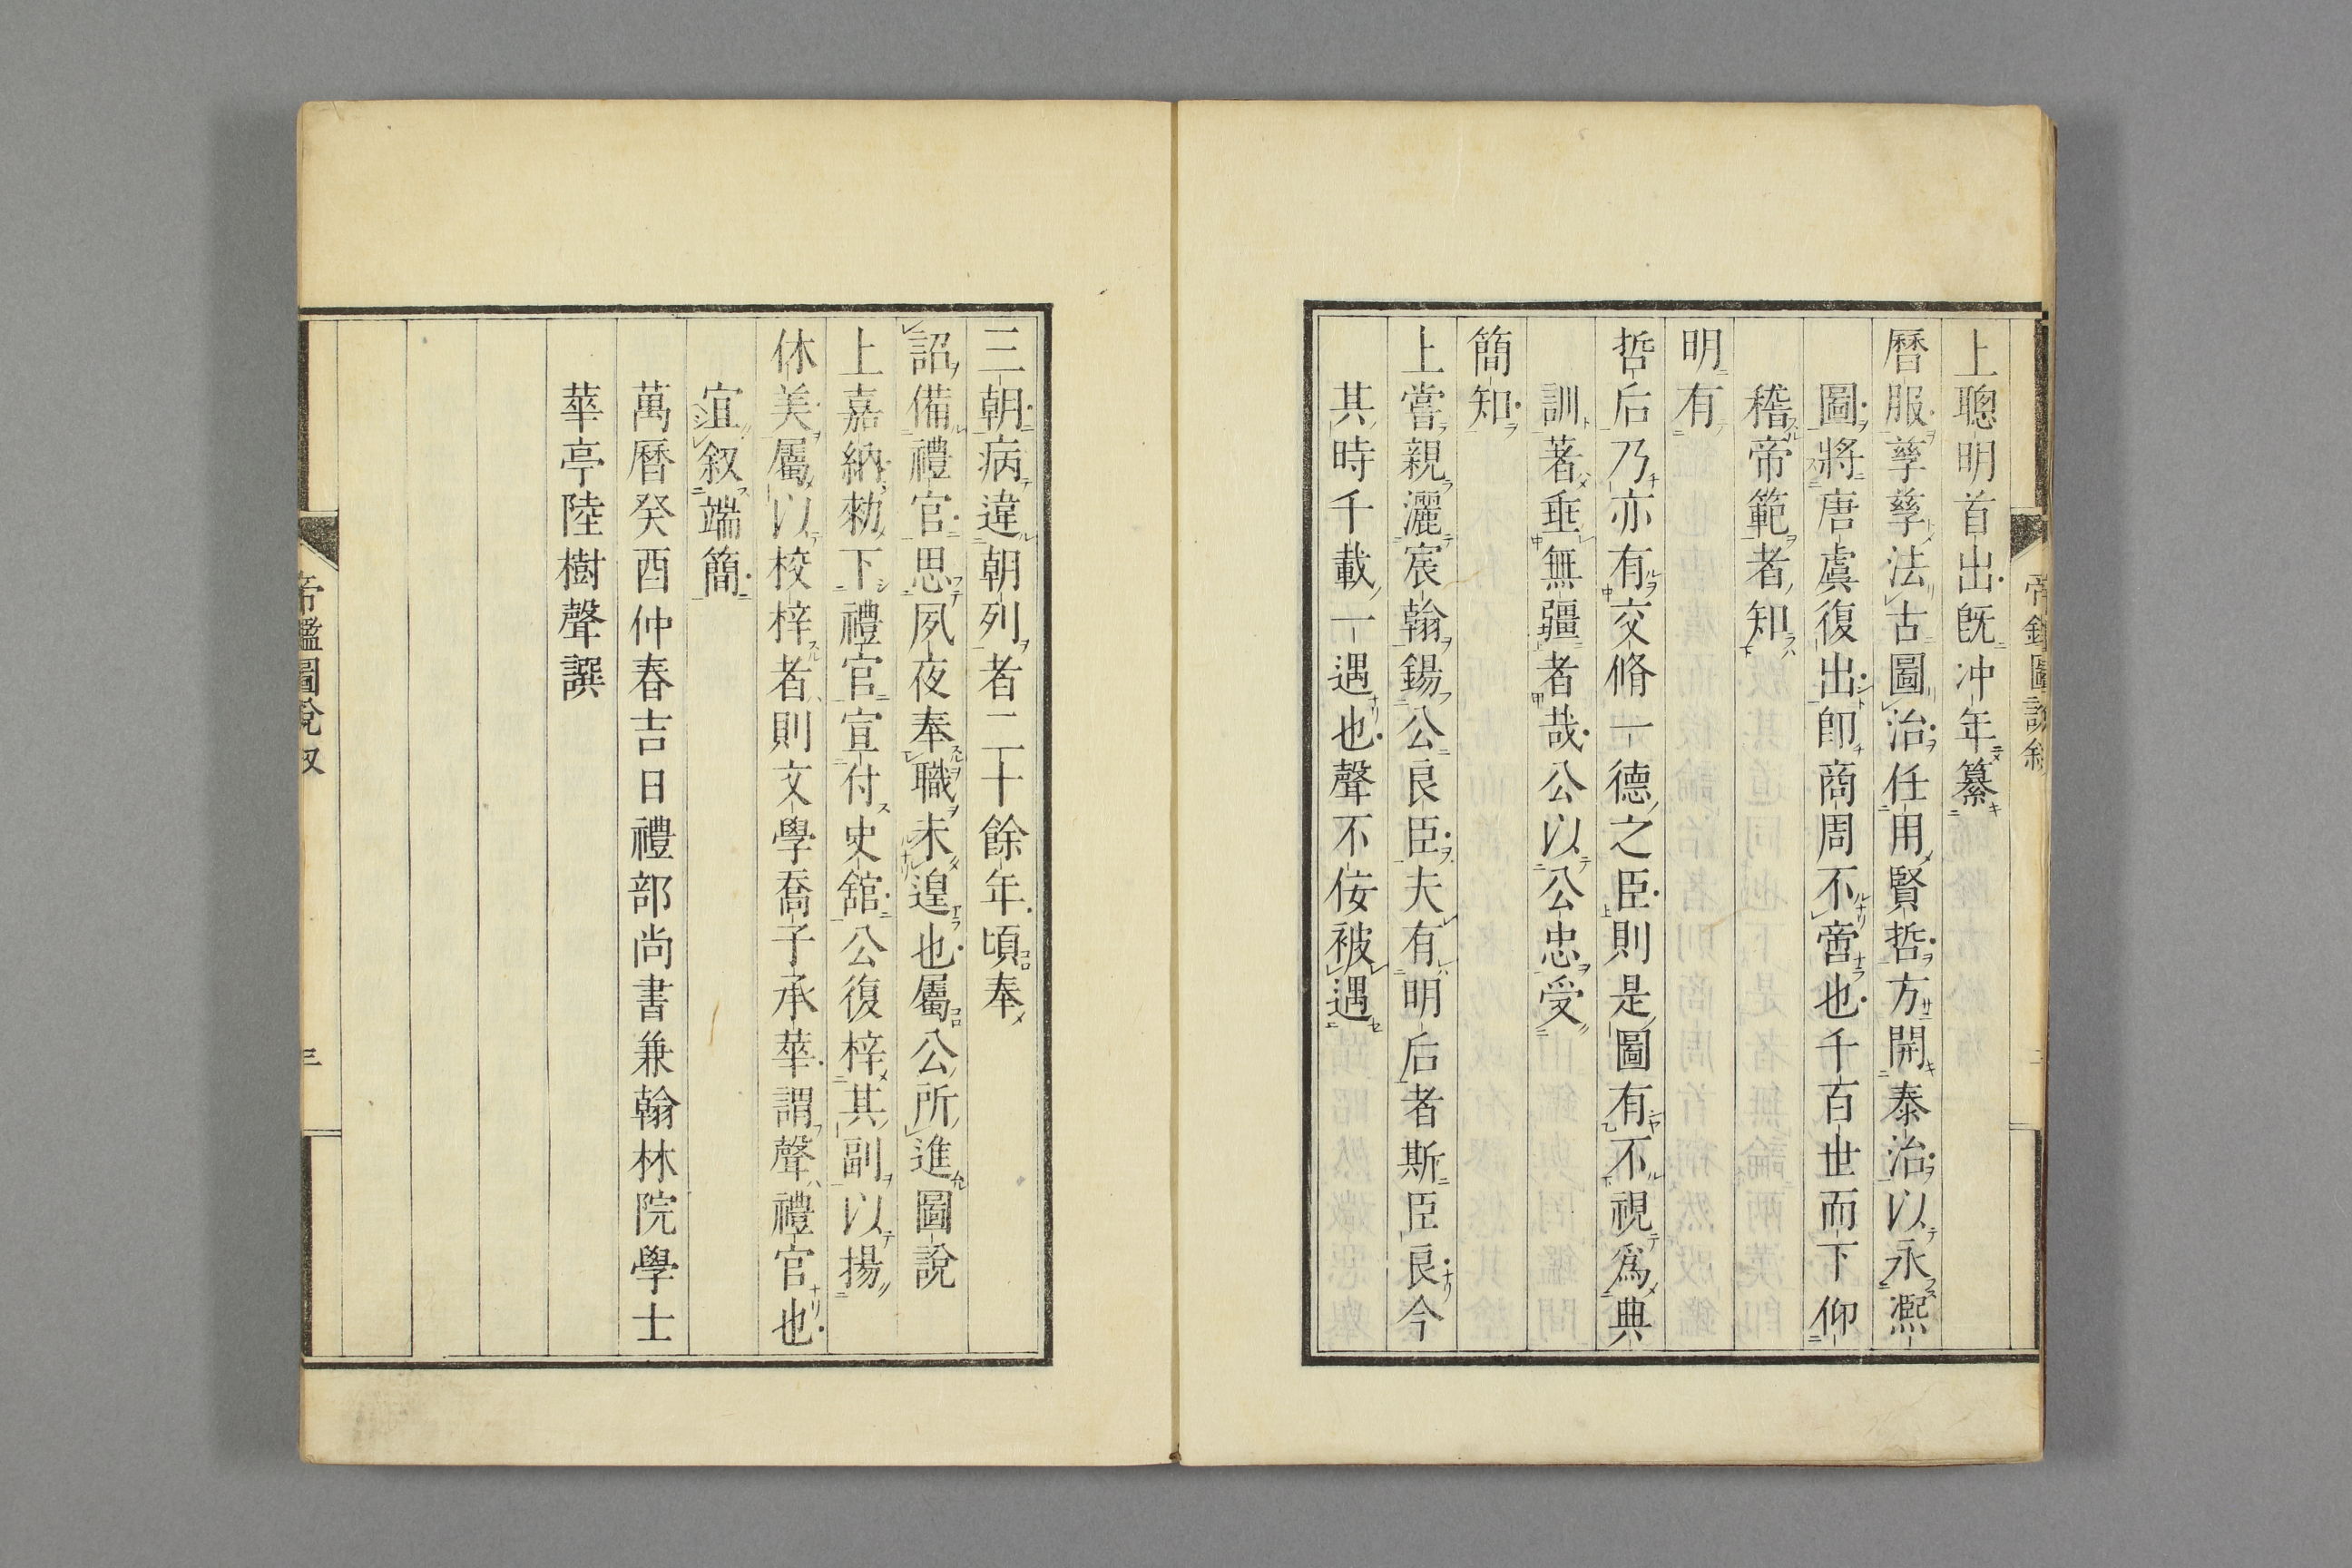 上聰明首出既冲年纂
曆服孳孳法古圖治任用賢哲方開泰治以永熈
圖將唐虞復出卽商周不啻也千百世而下仰
稽帝範者知
明有
哲后乃亦有交脩一德之臣則是圖有不視爲典
訓著垂無疆者哉公以公忠受
簡知
上嘗親灑宸翰錫公良臣夫有明后者斯臣良今
其時千載一遇也聲不佞被遇
三朝病違朝列者二十餘年頃奉
詔備禮官思夙夜奉職未遑也屬公所進圖說
上嘉納勑下禮官宣付史舘公復梓其副以揚
休美屬以校梓者則文學喬子承華謂聲禮官也
宜叙端簡
萬曆癸酉仲春吉日禮部尚書兼翰林院學士
華亭陸樹聲譔
帝鑑圖說叙
三